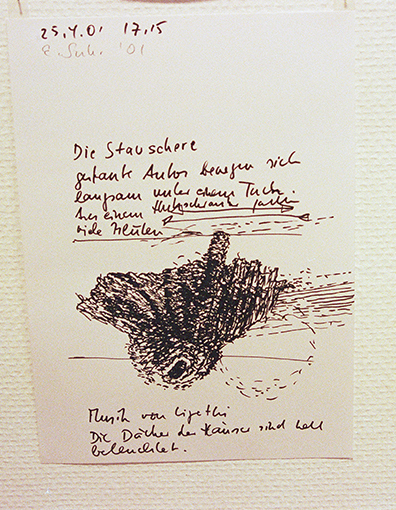 25.4.01 17.15
E. Suh. '01
Die Stauschere
getante Autos bewegen sich
langsam unter einem Tuch.
Aus einem
viele Blüten
Musik von Ligethi
Die Dächer der Häuser sind hell
beleuchtet.